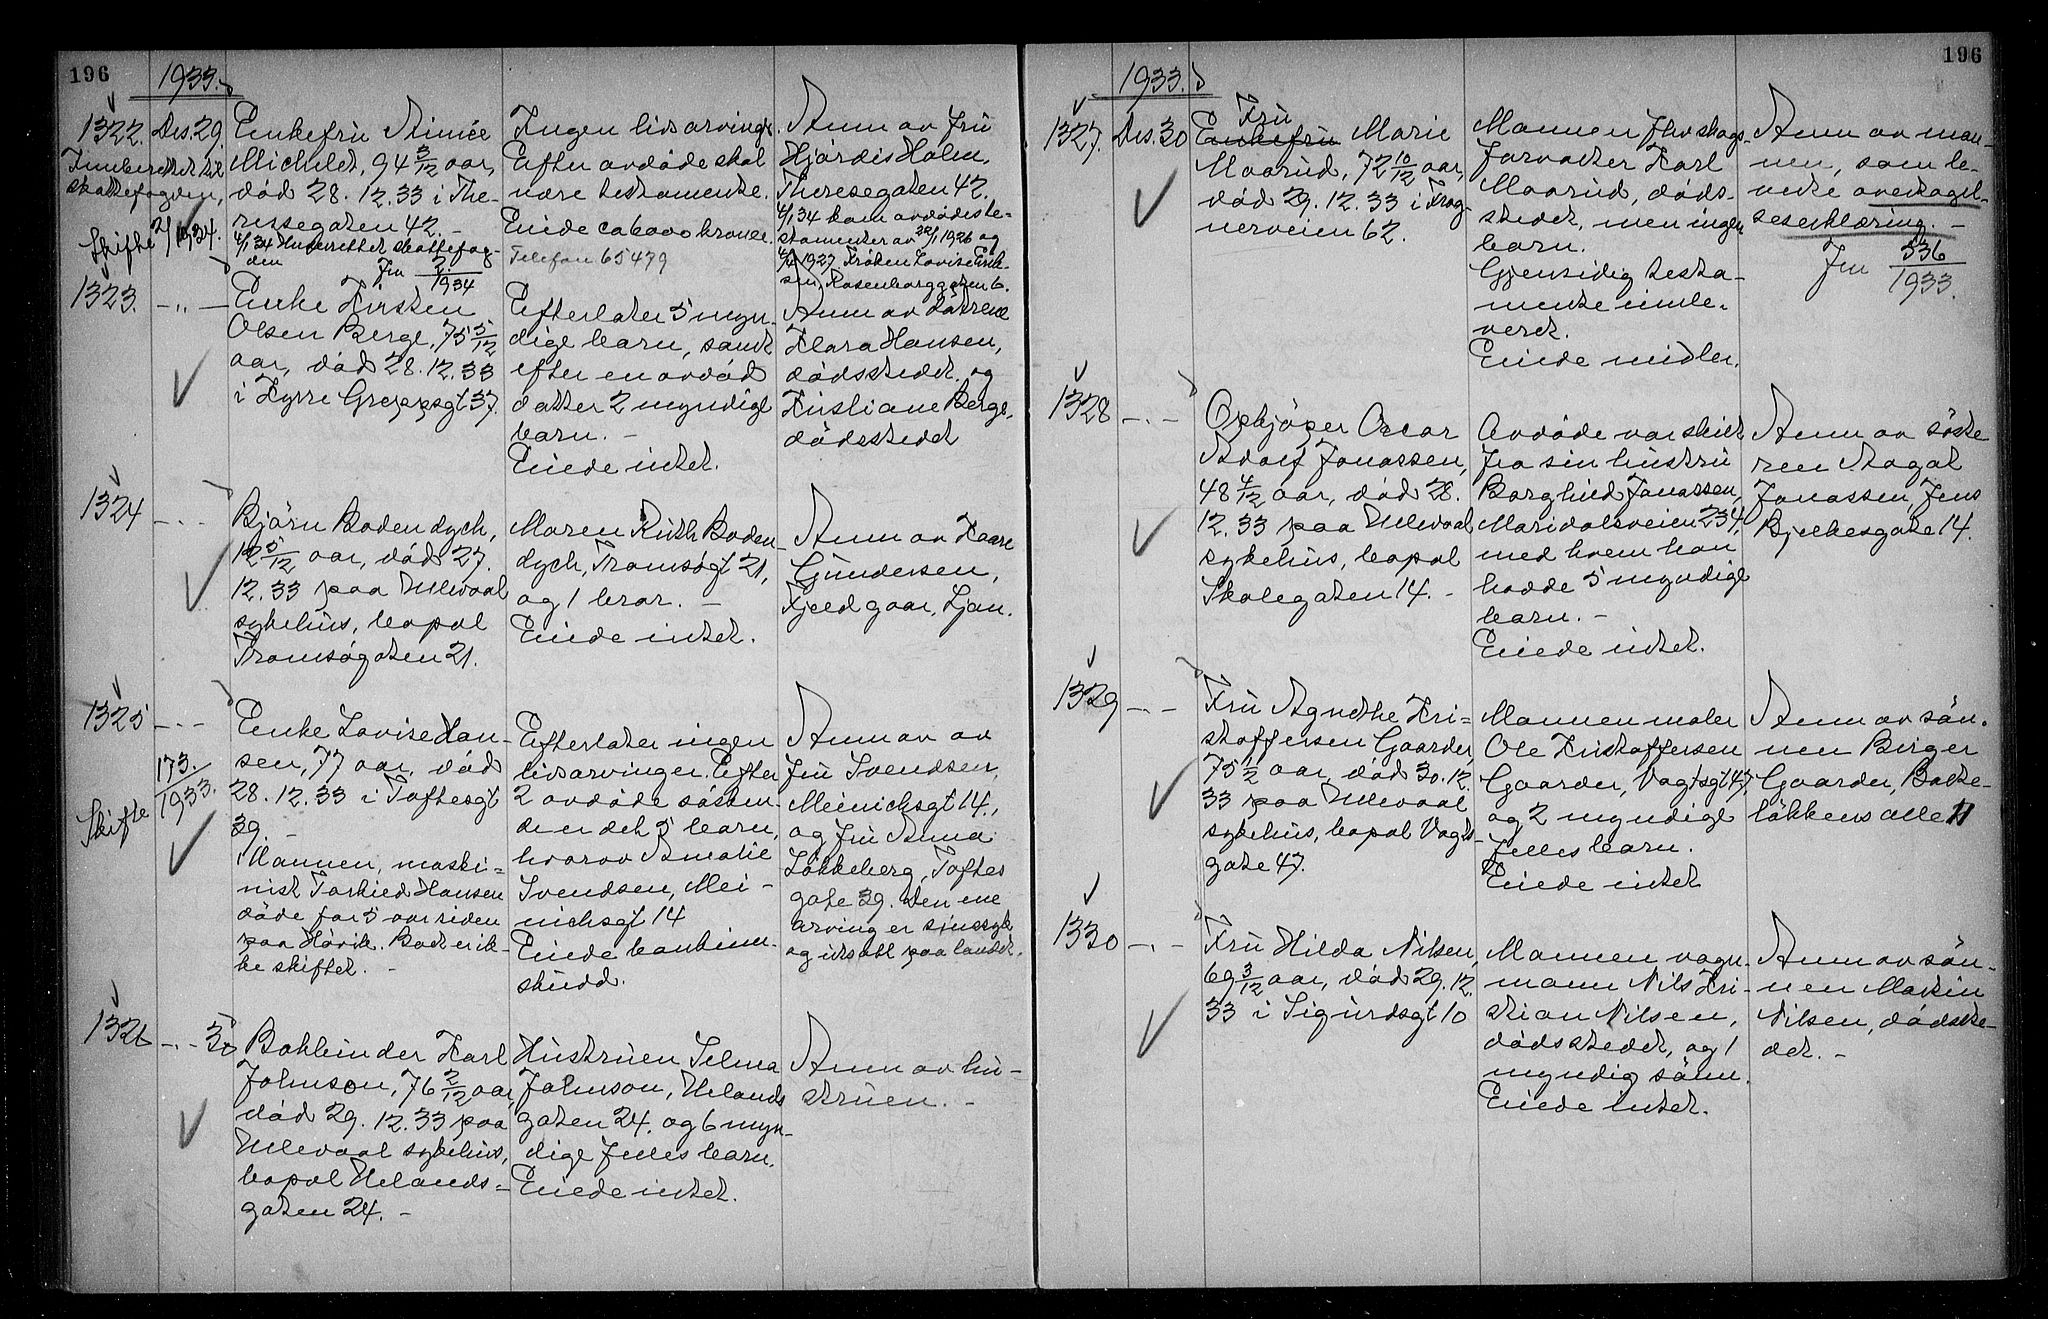 196
1933.
1322. Des. 29.
Innberettet til
skattefogden,
Skifte 2/1934.
Enkefru Aimée
Michelet, 94 3/12 aar,
död 28.12.33 i The-
ressegaten 42. -
4/1 34 Innberettet skattefog-
den
Jnr 2/1934
Ingen livsarvinger.
Efter avdöde skal
være testamente.
Eiede ca 6000 kroner.
Telefon 65479
Anm av fru
Hjördis Holm,
Theresegaten 42.
4/1 34 kom avdödes te-
stamenter av 22/1 1926 og
1927 Fröken Lovise Erik-
sen, Rosenborggaten 6.
1323. - " -
Enke Kirsten
Olsen Berge, 75 5/12
aar, död 28.12.33
i Kyrre Greppsgt 37.
Efterlater 5 myn-
dige barn, samt
efter en avdöd
datter 2 myndige
barn. -
Eiede intet.
Anm av dötrene
Klara Hansen,
dödsstedet, og
Kristiane Berge,
dödsstedet
1324 - " -
Björn Bodendych,
12 5/12 aar, död 27.
12.33 paa Ullevaal
sykehus, bopæl
Tromsögaten 21.
Moren Ruth Boden-
dych, Tromsøgt 21,
og 1 bror. -
Eiede intet.
Anm av Kaare
Gundersen,
Fjeldgaar, Ljan.
1325 - " -
173./1933.
Skifte
Enke Lovise Han-
sen, 77 aar, död
28.12.33 i Toftesgt
39. -
Mannen, maski-
nist Torkied Hansen
döde for 5 aar siden
paa Hövik. Boet er ik-
ke skiftet. -
Efterlater ingen
livsarvinger. Efter
2 avdöde sösken-
de er det 5 barn,
hvorav Amalie
Svendsen, Mei-
nichsgt 14
Eiede bankinn-
skudd.
Anm av av
fru Svendsen,
Meinichsgt 14.,
og fru Anna
Løkkeberg, Toftes
gate 39. Den ene
arving er sinssyk
og utsatt paa landet.
1326 - " - 30
Bokbinder Karl
Johnson, 76 2/12 aar,
död 29.12.33 paa
Ullevaal sykehus,
bopæl Uelands-
gaten 24. -
Hustruen Selma
Johnson, Uelands
gaten 24. og 6 myn-
dige felles barn.
Eiede intet.
Anm av hu-
struen. -
196
1933.
1327. Des. 30
Fru
Enkefru Marie
Moarud, 72 10/12 aar,
död 29.12.33 i Frog-
nerveien 62.
Mannen fhv skogs-
forvalter Karl
Moarud, döds-
stedet, men ingen
barn.
Gjensidig testa-
mente innle-
veret.
Eiede midler.
Anm av man-
nen, som le-
verte overtagel-
seserklæring. -
Jnr 536/1933.
1328 - " -
Opkjöper Oscar
Adolf Jonassen,
48 4/12 aar, död 28.
12.33 paa Ullevaal
sykehus, bopæl
Skolegaten 14. -
Avdöde var skilt
fra sin hustru
Borghild Jonassen,
Maridalsveien 234,
med hvem han
hadde 5 myndige
barn. -
Eiede intet.
Anm av söste-
ren Aagot
Jonassen, Jens
Bjelkesgate 14.
1329 - " -
Fru Agnethe Kri-
stoffersen Gaarder,
75 1/2 aar, död 30.12.
33 paa Ullevaal
sykehus, bopæl Vogts-
gate 47.
Mannen maler
Ole Kristoffersen
Gaarder, Vogtsgt 47,
og 2 myndige
felles barn.
Eiede intet
Anm av sön-
nen Birger
Gaarder, Bakke-
lökkens alle 11
1330 - " -
Fru Hilda Nilsen,
69 3/12 aar, död 29.12.
33 i Sigurdsgt 10
Mannen vogn-
mann Nils Kri-
stian Nilsen,
dödsstedet, og 1
myndig sönn.
Eiede intet.
Anm av sön-
nen Martin
Nilsen, dödsste-
det. -